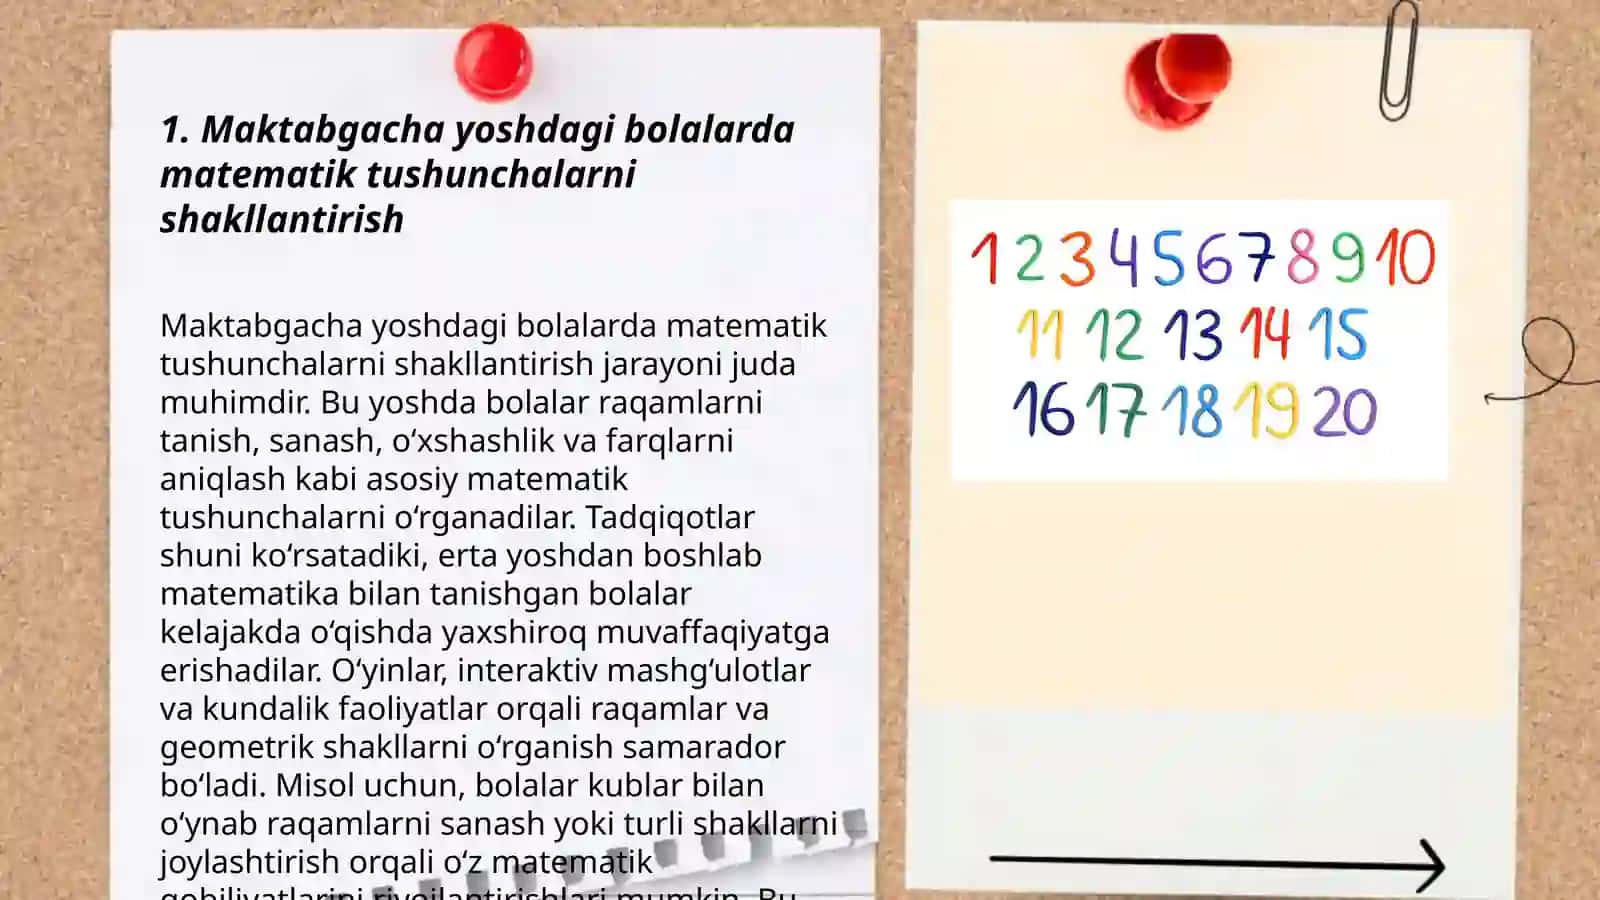 1. Maktabgacha yoshdagi bolalarda
matematik tushunchalarni
shakllantirish
Maktabgacha yoshdagi bolalarda matematik
tushunchalarni shakllantirish jarayoni juda
muhimdir. Bu yoshda bolalar raqamlarni
tanish, sanash, o‘xshashlik va farqlarni
aniqlash kabi asosiy matematik
tushunchalarni o‘rganadilar. Tadqiqotlar
shuni ko‘rsatadiki, erta yoshdan boshlab
matematika bilan tanishgan bolalar
kelajakda o‘qishda yaxshiroq muvaffaqiyatga
erishadilar. O‘yinlar, interaktiv mashg‘ulotlar
va kundalik faoliyatlar orqali raqamlar va
geometrik shakllarni o‘rganish samarador
bo‘ladi. Misol uchun, bolalar kublar bilan
o‘ynab raqamlarni sanash yoki turli shakllarni
joylashtirish orqali o‘z matematik
qobiliyatlarini rivojlantirishlari mumkin. Bu
1 2 3 4 5 6 7 8 9 10
11 12 13 14 15
16 17 18 19 20